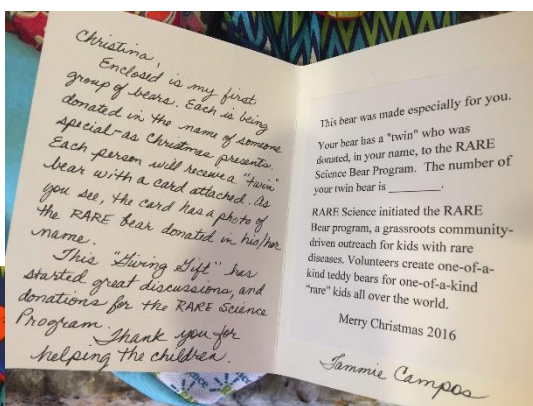 Christina,
Enclosed is my first
group of bears. Each is being
donated in the name of someone
special-as Christmas presents.
Each person will receive a "twin"
bear with a card attached. As
you see, the card has a photo of
the RARE bear donated in his/her
name.
This "Giving Gift" has
started great discussions, and
donations for the RARE Science
Program.
Thank you for
helping the children.
This bear was made especially for you.
Your bear has a "twin" who was
donated, in your name, to the RARE
Science Bear Program. The number of
your twin bear is ________.
RARE Science initiated the RARE
Bear program, a grassroots community-
driven outreach for kids with rare
diseases. Volunteers create one-of-a-
kind teddy bears for one-of-a-kind
"rare" kids all over the world.
Merry Christmas 2016
Tammie Campos